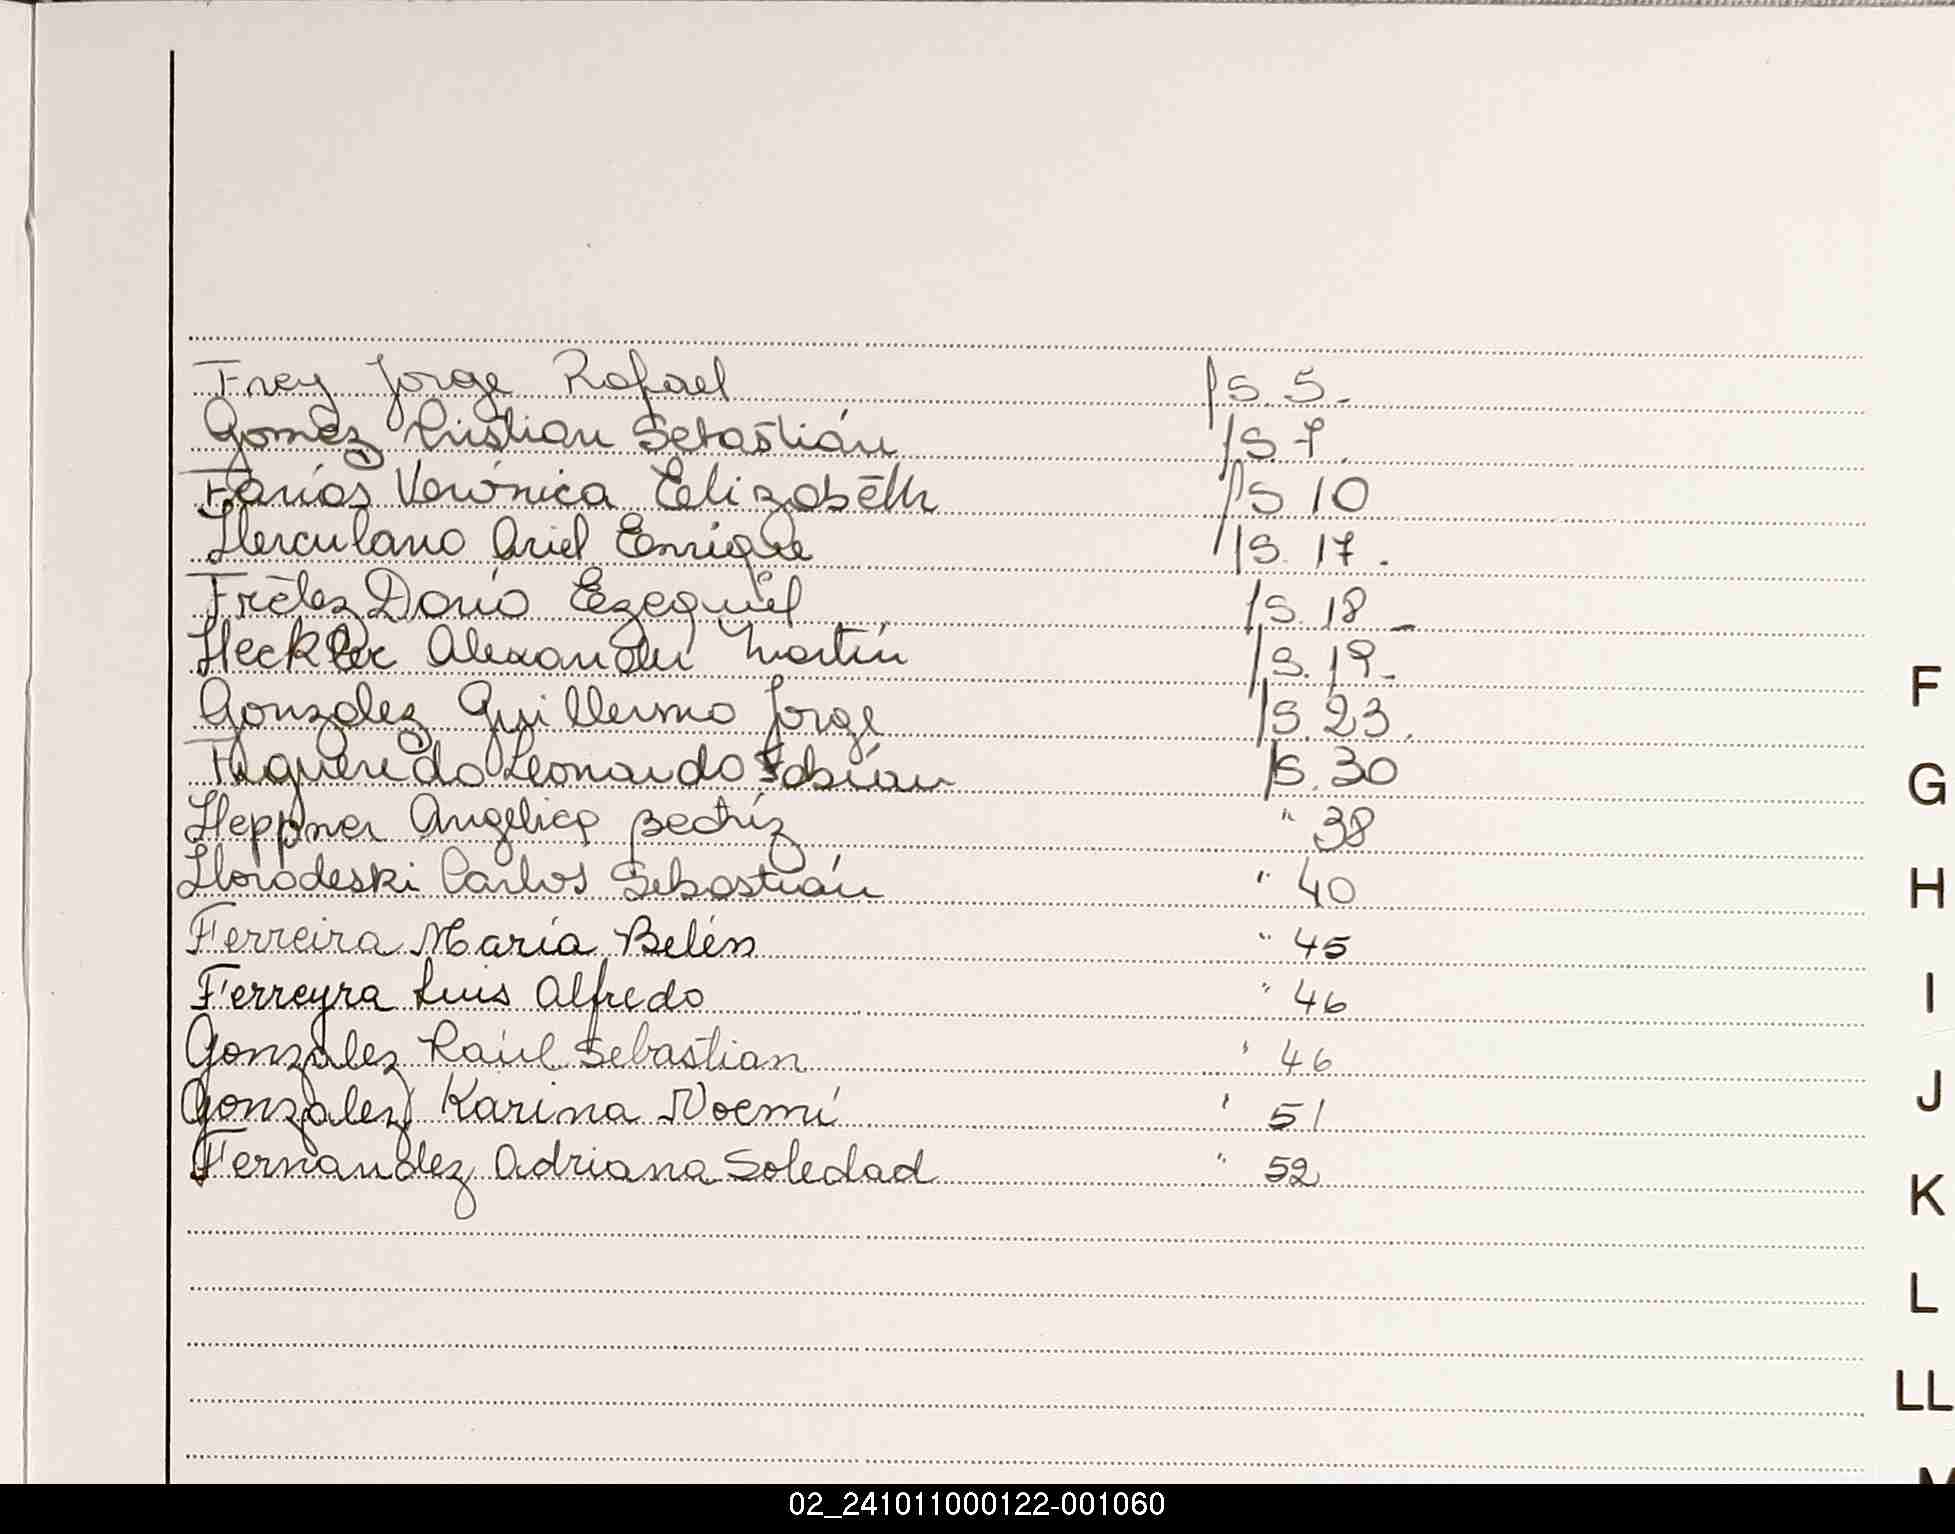 Frey Jorge Rafael fs. 5.-
Gomez Cristian Sebastián fs. 7.
Farias Verónica Elizabeth fs 10
Herculano Ariel Enrique fs. 17.
Frètez Dario Ezequiel fs. 18 -
Heckler Alexander Martín fs. 19.-
Gonzalez Guillermo Jorge fs. 23.
Figueredo Leonardo Fabián fs. 30
Heppner Angelica Beatríz " 38
Horodeski Carlos Sebastián " 40
Ferreira María Belén " 45
Ferreyra Luis Alfredo " 46
Gonzalez Raúl Sebastian " 46
Gonzalez Karina Noemí " 51
Fernandez Adriana Soledad " 52
F
G
H
I
J
K
L
LL
M
02_241011000122-001060